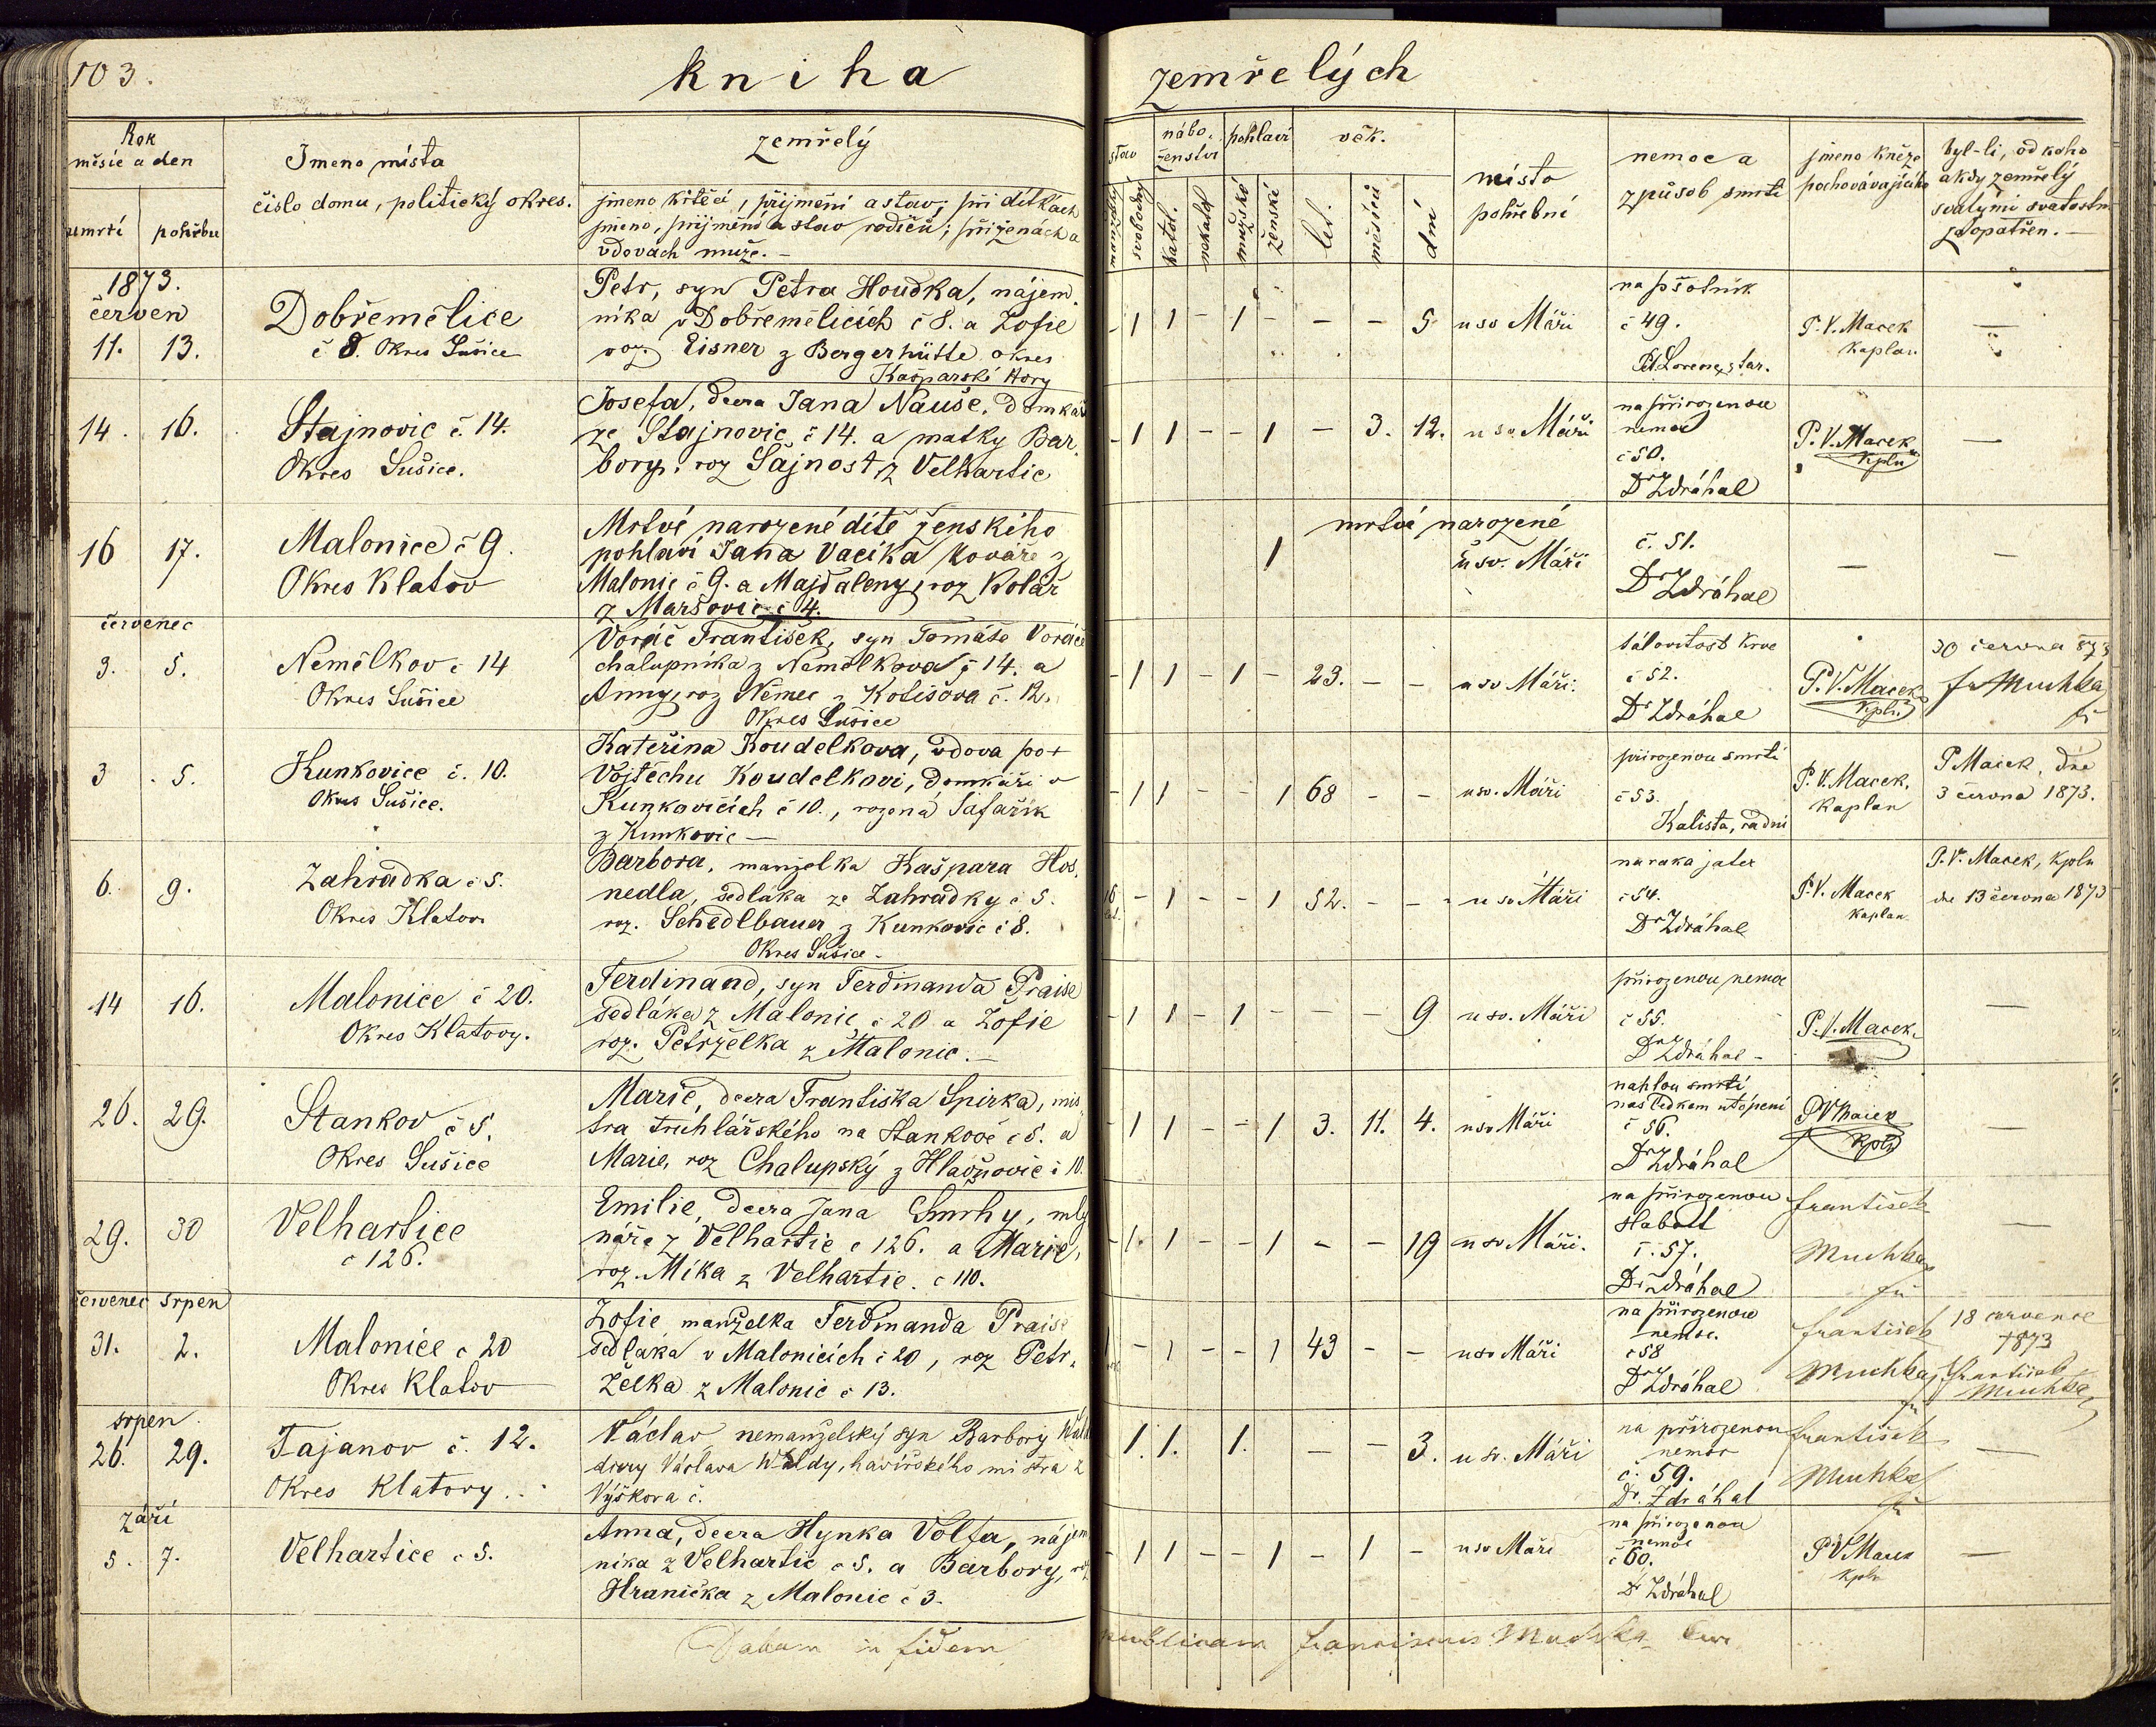 103.
kniha
zemřelých
Rok
měsíc a den
umrtí pohřbu
Jmeno místa
číslo domu, politický okres.
zemřelý
jmeno křtěcí, přijmení a stav; při dítkách
jmeno, přijmění a stav rodičů; při ženách a
vdovách muže. -
stav
nábo-
ženství
pohlaví
věk.
svobodný
katol.
nekatol
mužské
ženské
let.
měsíců
dní
místo
pohřební
nemoc a
způsob smrti
jmeno kněze
pochovávajícího
byl-li, od koho
a kdy zemřelý
svatými svátostmi
zaopatřen. -
1873.
červen
11. 13.
Dobřemělice
č 8. Okres Sušice
Petr, syn Petra Houdka, nájem-
níka v Dobřemělicích č 8. a Žofie
roz. Eisner z Bergerhütte okres
Kašparské Hory
- 1 1 - 1 - - - 5 u sv Máří
na psotník
č 49.
P. V. Macek
Kaplan
—
14. 16.
Stajnovic č. 14.
Okres Sušice.
Josefa, dcera Jana Nauše, domkáře
ze Stajnovic č 14. a matky Bar-
bory, roz Šajnost z Velhartic
- 1 1 - - 1 - 3. 12. u sv. Máří
na přirozenou
nemoc
č 50.
Dr Zdráhal
P. V. Macek
kpln
—
16 17.
Malonice č 9.
Okres Klatov
Mrtvé narozené dítě ženského
pohlaví Jana Vacíka kováře z
Malonic č 9. a Majdaleny, roz Kolář
z Maršovic č 4.
mrtvé narozené
1 u sv. Máří
č. 51.
Dr Zdráhal
—
—
červenec
3. 5.
Nemělkov č 14
Okres Sušice
Voráč František, syn Tomáše Voráče
chalupníka z Nemělkova č 14. a
Anny, roz Němec z Kotišova č. 12.
Okres Sušice
- 1 1 - 1 - 23. - - u sv Máří.
krve
č 52.
Dr Zdráhal
P. V. Macek
kpln
30 června 873
fr Muchka
3 5.
Kunkovice č. 10.
Okres Sušice.
Kateřina Koudelkova, vdova po +
Vojtěchu Koudelkovi, domkáři v
Kunkovicích č 10., rozená Šafařík
z Kunkovic —
- 1 1 - - 1 68 - - u sv. Máří
přirozenou smrtí
č 53.
Kalista, radní
P. V. Macek,
Kaplan
P Macek, dne
3 června 1873.
6. 9.
Zahrádka č 5.
Okres Klatov
Barbora, manželka Kašpara Hos-
nedla, sedláka ze Zahrádky č 5.
roz. Schedlbauer z Kunkovic č 8.
Okres Sušice -
16 - 1 - - 1 52. - - u sv Máří
na raka jater
č 54.
Dr Zdráhal
P. V. Macek
Kaplan.
P. V. Macek, kpln
dne 13 června 1873
14 16.
Malonice č 20.
Okres Klatovy.
Ferdinand, syn Ferdinanda Praise
sedláka z Malonic č 20 a Žofie
roz. Petrželka z Malonic. -
- 1 1 - 1 - - - 9 u sv. Máří
přirozenou nemoc
č 55.
Dr Zdráhal -
P. V. Macek
—
26. 29.
Stankov č 5.
Okres Sušice
Marie, dcera Františka Spirka, mis-
tra truhlářského na Stankově č 5. a
Marie, roz Chalupský z Hlavňovic č 10.
- 1 1 - - 1 3. 11. 4. u sv Máří
nahlou smrtí
následkem utopení
č 56.
Dr Zdráhal
P V Macek
Kpln
—
29. 30
Velhartice
č 126.
Emilie, dcera Jana Smrhy, mly-
náře z Velhartic č 126. a Marie,
roz. Mika z Velhartic. č 110.
- 1. 1 - - 1 - - 19 u sv Máří.
na přirozenou
slabost
č. 57.
Dr Zdráhal
František
Muchka
—
červenec srpen
31. 2.
Malonice č 20
Okres Klatov
Žofie manželka Ferdinanda Praise
sedláka v Malonicích č 20, roz Petr-
želka z Malonic č 13.
1 - 1 - - 1 43 - - u sv Máří
na přirozenou
nemoc.
č 58
Dr Zdráhal
František
Muchka
18 července
1873
František
Muchka
srpen
26. 29.
Tajanov č. 12.
Okres Klatovy.
Václav nemanželský syn Barbory
dcery Václava Waldy, havířského mistra z
Výškova č.
1. 1. 1. - - 3. u sv. Máří
na přirozenou
nemoc
č. 59.
Dr. Zdráhal
František
Muchka
—
září
5. 7.
Velhartice č 5.
Anna, dcera Hynka Volfa, nájem-
níka z Velhartic č 5. a Barbory, roz
Hranička z Malonic č 3.
- 1 1 - - 1 - 1 - u sv Máří
na přirozenou
nemoc
č 60.
Dr Zdráhal
P V Macek
kpln
—
Datum in fidem
publicam Franciscus Muchka